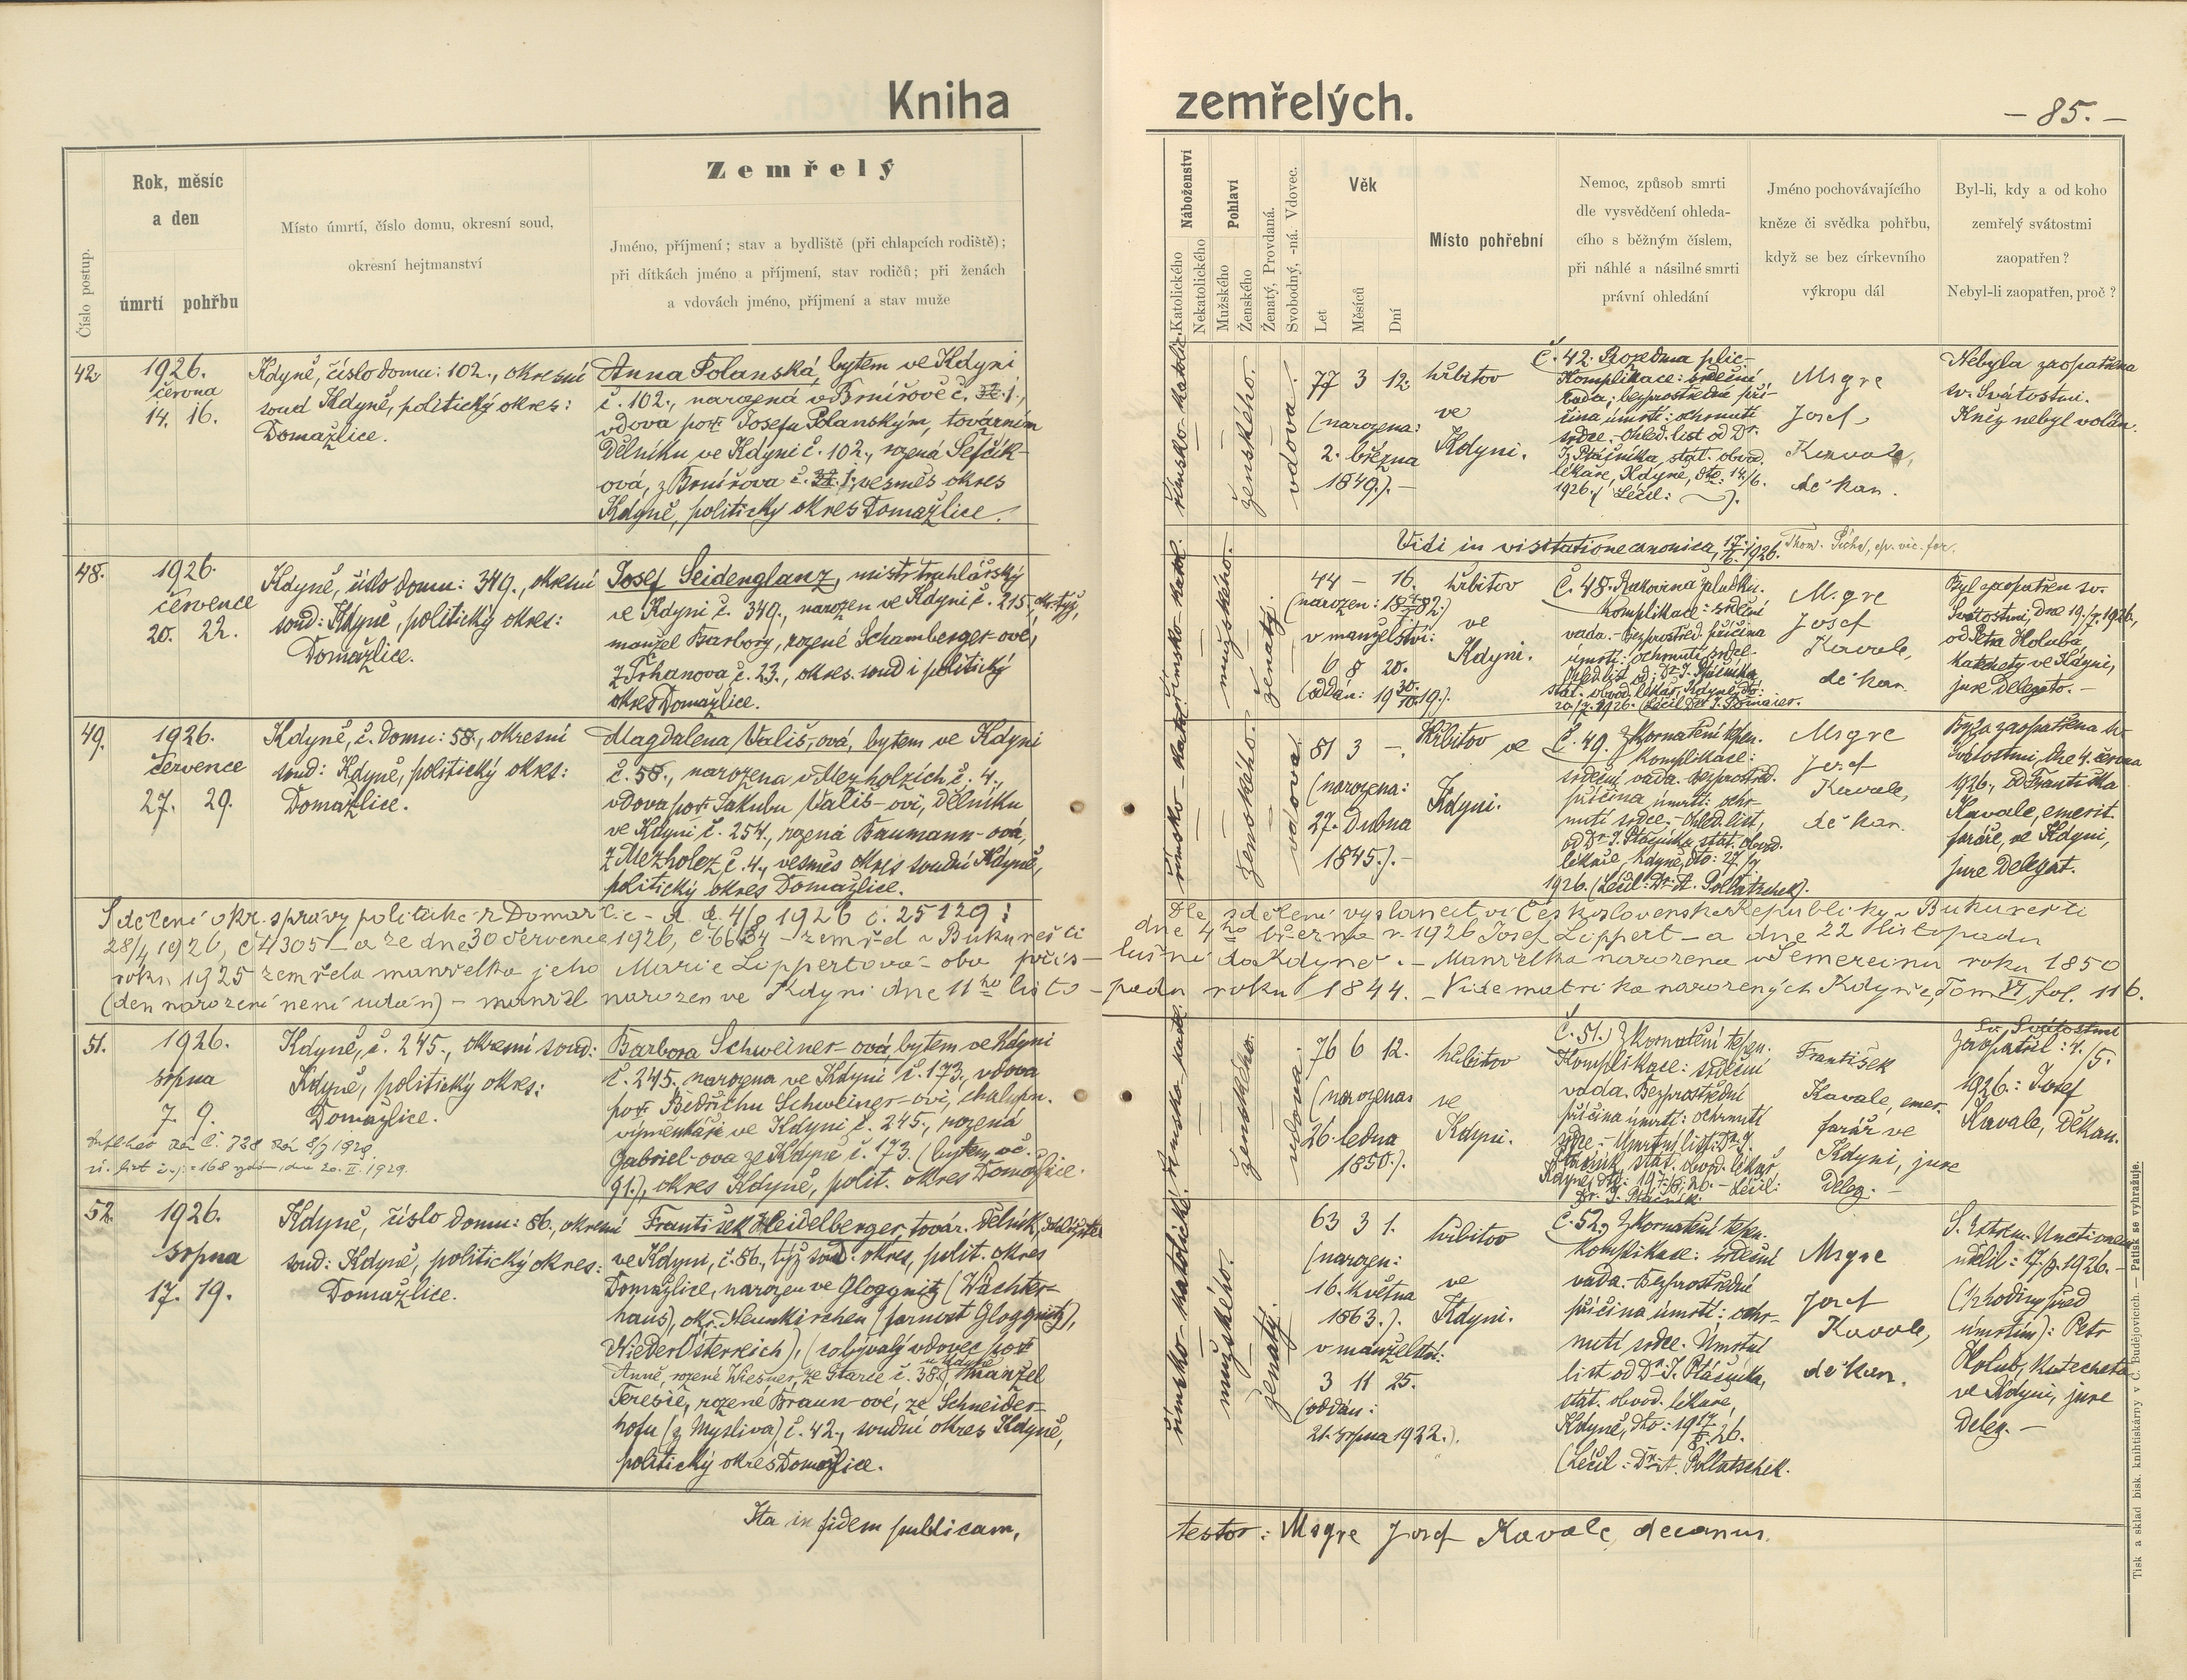 Kniha zemřelých.
— 85. —
Číslo postup.
Rok, měsíc
a den
úmrtí pohřbu
Místo úmrtí, číslo domu, okresní soud,
okresní hejtmanství
Zemřelý
Jméno, příjmení; stav a bydliště (při chlapcích rodiště);
při dítkách jméno a příjmení, stav rodičů; při ženách
a vdovách jméno, příjmení a stav muže
Náboženství
Katolického
Nekatolického
Pohlaví
Mužského
Ženského
Ženatý, Provdaná.
Svobodný, -ná. Vdovec.
Věk
Let
Měsíců
Dní
Místo pohřební
Nemoc, způsob smrti
dle vysvědčení ohleda-
cího s běžným číslem,
při náhlé a násilné smrti
právní ohledání
Jméno pochovávajícího
kněze či svědka pohřbu,
když se bez církevního
výkropu dál
Byl-li, kdy a od koho
zemřelý svátostmi
zaopatřen?
Nebyl-li zaopatřen, proč?
42.
1926.
června
14. 16.
Kdyně, číslo domu: 102., okresní
soud Kdyně, politický okres:
Domažlice.
Anna Polanská, bytem ve Kdyni
č. 102., narozená v Brnířově č. 1.,
vdova po Josefu Polanským, továrním
dělníku ve Kdyni č. 102., rozená Šefčík-
ová, z Brnířova č. 1., vesměs okres
Kdyně, politický okres Domažlice.
římsko-katolic.
ženského.
vdova.
77 3 12.
(narozena:
2. března
1849.). —
hřbitov
ve
Kdyni.
Č. 42. Rozedma plic-
Komplikace: srdeční
vada; bezprostřední pří-
čina úmrtí: ochrnutí
srdce. - ohled. list od Dr.
J. Ptáčníka, stát. obvod.
lékaře, Kdyně, dto: 14/6.
1926. (Léčil: —).
Msgre
Josef
Kavale,
děkan.
Nebyla zaopatřena
sv. Svátostmi.
Kněz nebyl volán.
Vidi in visitatione canonica, 17/6. 1926.
48.
1926.
července
20. 22.
Kdyně, číslo domu: 349., okresní
soud: Kdyně, politický okres:
Domažlice.
Josef Seidenglanz, mistr truhlářský
ve Kdyni č. 349., narozen ve Kdyni č. 215., okr. týž,
manžel Barbory, rozené Schamberger-ové,
z Trhanova č. 23., okres. soud i politický
okres Domažlice.
římsko-katol.
mužského.
ženatý.
44 — 16.
(narozen: 18 82.)
v manželství:
6 8 20.
(oddán: 19 30/10. 19.).
hřbitov
ve
Kdyni.
Č. 48. Rakovina žaludku.
Komplikace: srdeční
vada. - Bezprostřed. příčina
úmrtí: ochrnutí srdce. -
Ohled. list od: Dr. J. Ptáčníka,
stát. obvod. lékař, Kdyně, dto:
20./7. 1926.
Msgre
Josef
Kavale,
děkan.
Byl zaopatřen sv.
Svátostmi, dne 19./7. 1926,
od Petra Holuba,
katechety ve Kdyni,
jure delegato. —
49.
1926.
července
27. 29.
Kdyně, č. domu: 58., okresní
soud: Kdyně, politický okres:
Domažlice.
Magdalena Vališ-ová, bytem ve Kdyni
č. 58., narozena v Mezholzích č. 4.,
vdova po Jakubu Vališ-ovi, dělníku
ve Kdyni č. 254., rozená Baumann-ová,
z Mezholez č. 4., vesměs okres soudní Kdyně,
politický okres Domažlice.
římsko-katol.
ženského.
vdova.
81 3 —.
(narozena:
27. dubna
1845.). —
Hřbitov ve
Kdyni.
Č. 49. Zkornatění tepen.
Komplikace:
srdeční vada. Bezprostřed.
příčina úmrtí: ochr-
nutí srdce. - Ohled. list,
od Dr. J. Ptáčníka, stát. obvod.
lékaře, Kdyně, dto: 27/7
1926. (Léčil: Dr. A. Pollatschek).
Msgre
Josef
Kavale,
děkan.
Byla zaopatřena sv.
Svátostmi, dne 4. června
1926., od Františka
Kavale, emerit.
faráře, ve Kdyni,
jure delegat.
Sdělení okr. správy politické z Domažlic - d. d. 4/8 1926 č. 25129:
Dle sdělení vyslanectví Československé Republiky v Bukurešti
28/4 1926, č. 4305 — a ze dne 30 července 1926, č. 6634 — zemřel v Bukurešti
dne 4ho března r. 1926 Josef Lippert — a dne 22 listopadu
roku 1925 zemřela manželka jeho Marie Lippertová - oba přís-
lušní do Kdyně. — Manželka narozena v Semereinu roku 1850
(den narození není udán) — manžel narozen ve Kdyni dne 11ho listo-
padu roku 1844. — Vide matrika narozených Kdyně, Tom VI, fol. 116.
51.
1926.
srpna
7. 9.
Kdyně, č. 245., okresní soud:
Kdyně, politický okres:
Domažlice.
ú. list č. j. 168 vydán dne 20. II. 1929.
Barbora Schweiner-ová, bytem ve Kdyni
č. 245., narozena ve Kdyni č. 173., vdova
po Bedřichu Schweiner-ovi, chalupn.
výměnkáři ve Kdyni č. 245., rozená
Gabriel-ova ze Kdyně č. 173. (bytem vč.
91.), okres Kdyně, polit. okres Domažlice.
římsko katol.
ženského.
vdova.
76 6 12.
(narozena:
26. ledna
1850.).
hřbitov
ve
Kdyni.
Č. 51.) Zkornatění tepen.
Komplikace: srdeční
vada. Bezprostřední
příčina úmrtí: ochrnutí
srdce. - Úmrtní list: Dr. J.
Ptáčník, stát. obvod. lékař,
Kdyně, dto: 19 7/8. 26. — Léčil:
Dr. J. Ptáčník.
František
Kavale, emer.
farář ve
Kdyni, jure
deleg. —
Sv. Svátostmi
zaopatřil: 4./5.
1926.: Josef
Kavale, děkan.
52.
1926.
srpna
17. 19.
Kdyně, číslo domu: 86., okresní
soud: Kdyně, politický okres:
Domažlice.
František Heidelberger, továr. dělník,
ve Kdyni, č. 86., týž soud. okres, polit. okres
Domažlice, narozen ve Gloggnitz (Wächter-
haus), okr. Neunkirchen (farnost Gloggnitz),
NiederÖsterreich), (
Anně, rozené Wiesner, ze Starce č. 38. u Kdyně) manžel
Teresie, rozené Braun-ové, ze Schneider-
hofu (z Mysliva) č. 42., soudní okres Kdyně,
politický okres Domažlice.
římsko-katolické.
mužského.
ženatý.
63 3 1.
(narozen:
16. května
1863.).
v manželství:
3 11 25.
(oddán:
21. srpna 1922.).
hřbitov
ve
Kdyni.
Č. 52., Zkornatění tepen.
Komplikace: srdeční
vada. - Bezprostřední
příčina úmrtí: ochr-
nutí srdce. Úmrtní
list od Dr. J. Ptáčníka,
stát. obvod. lékaře,
Kdyně, dto: 19 17/8. 26.
(Léčil: Dr. A. Pollatschek.
Msgre
Josef
Kavale,
děkan.
S. Extrem. Unctionem
udělil: 17./8. 1926. —
(½ hodiny před
úmrtím): Petr
Holub, katecheta
ve Kdyni, jure
deleg. —
Ita in fidem publicam,
testor: Msgre Josef Kavale, decanus.
Tisk a sklad bisk. knihtiskárny v Č. Budějovicích. — Patisk se vyhražuje.